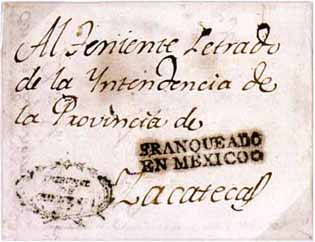 Al Teniente Letrado
de la Yntendencia de
la Provincia de
FRANQUEADO
EN MEXICO
Zacatecas